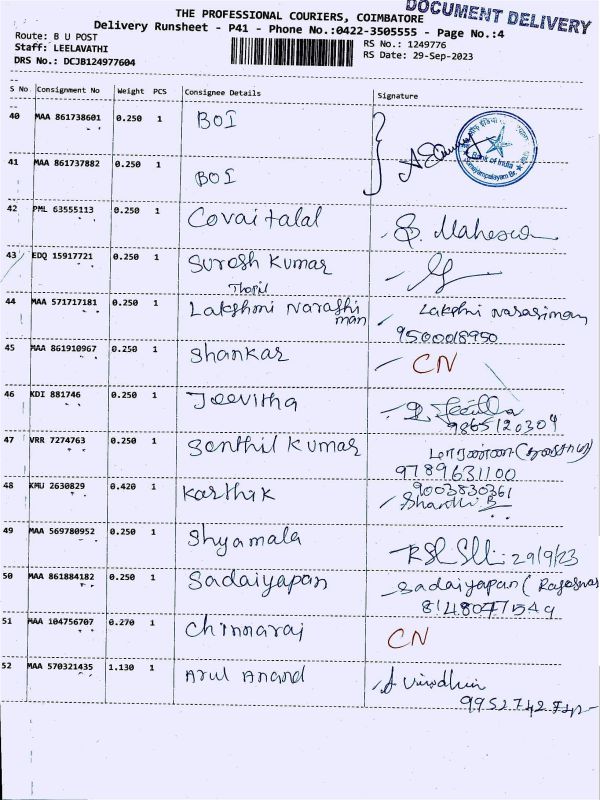 DOCUMENT DELIVERY
THE PROFESSIONAL COURIERS, COIMBATORE
Delivery Runsheet - P41 - Phone No.:0422-3505555 - Page No.:4
Route: B U POST
RS No.: 1249776
Staff: LEELAVATHI
RS Date: 29-Sep-2023
DRS No.: DCJB124977604
S No Consignment No Weight PCS Consignee Details Signature
40 MAA 861738601 0.250 1 BOI
41 MAA 861737882 0.250 1 BOI
Bank of India
42 PML 63555113 0.250 1 Covai talal S. Maheswa
43 EDQ 15917721 0.250 1 Suresh Kumar
Thapil
44 MAA 571717181 0.250 1 Lakshmi Narashi Lakshmi Narasiman
man 9500018950
45 MAA 861910967 0.250 1 Shankar CN
46 KDI 881746 0.250 1 Jeevitha
9865120304
47 VRR 7274763 0.250 1 Senthil Kumar
9789631100
48 KMU 2630829 0.420 1 Karthik 9003830361
Shanthi B
49 MAA 569780952 0.250 1 Shyamala 29/9/23
50 MAA 861884182 0.250 1 Sadaiyapan Sadaiyapan (
51 MAA 104756707 0.270 1 Chinnaraj CN
52 MAA 570321435 1.130 1 Arul Anand